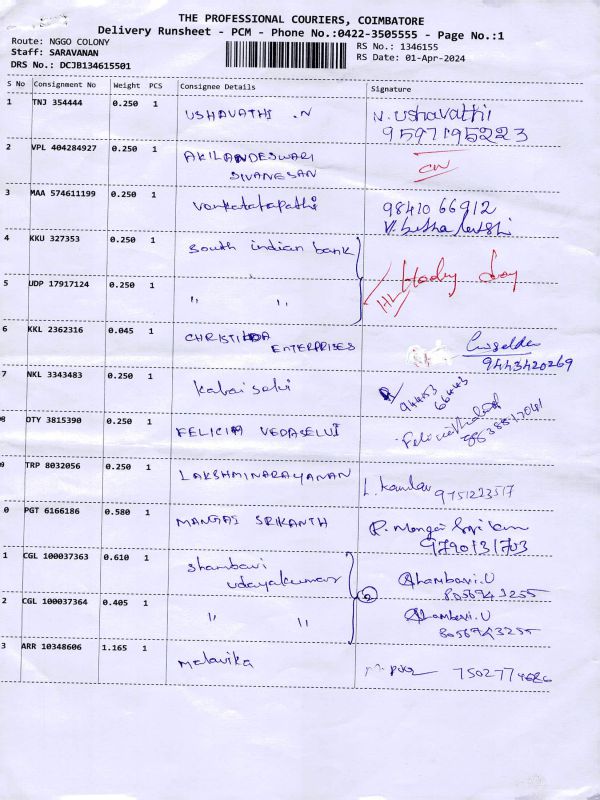 THE PROFESSIONAL COURIERS, COIMBATORE
Delivery Runsheet - PCM - Phone No.:0422-3505555 - Page No.:1
Route: NGGO COLONY
Staff: SARAVANAN
DRS No.: DCJB134615501
RS No.: 1346155
RS Date: 01-Apr-2024
S No Consignment No Weight PCS Consignee Details Signature
1 TNJ 354444 0.250 1 USHAVATHI .N N. Ushavathi
9597195223
2 VPL 404284927 0.250 1 AKILANDESWARI
SIVANESAN
3 MAA 574611199 0.250 1 Venkatatapathi 98410 66912
4 KKU 327353 0.250 1 South indian bank
5 UDP 17917124 0.250 1 " "
6 KKL 2362316 0.045 1 CHRISTINA
ENTERPRISES
9443420269
7 NKL 3343483 0.250 1 Kalaiselvi
8 DTY 3815390 0.250 1 FELICIA VEDASELVI
9 TRP 8032056 0.250 1 LAKSHMINARAYANAN
9751223517
0 PGT 6166186 0.580 1 MANGAI SRIKANTH
9790131703
1 CGL 100037363 0.610 1 Shambavi
Udayakumar
Shambavi.U
8056943255
2 CGL 100037364 0.405 1 " " Shambavi.U
8056943255
3 ARR 10348606 1.165 1 Malavika 7502774686